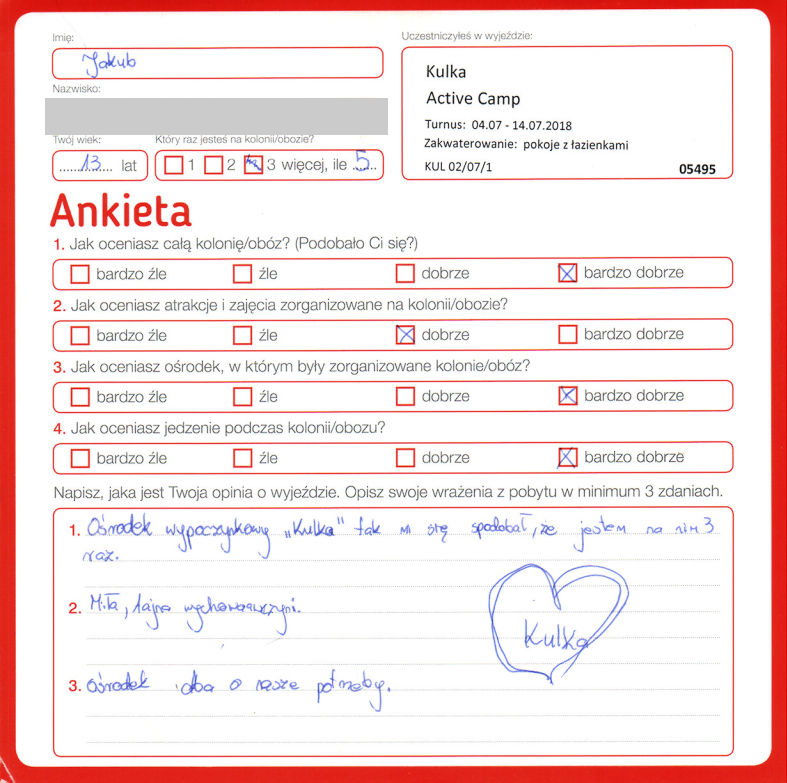 Imię:
Jakub
Uczestniczyłeś w wyjeździe:
Kulka
Active Camp
Turnus: 04.07 - 14.07.2018
Zakwaterowanie: pokoje z łazienkami
KUL 02/07/1
05495
Nazwisko:
Twój wiek:
13 lat
Który raz jesteś na kolonii/obozie?
1 2 3 więcej, ile 5
Ankieta
1. Jak oceniasz całą kolonię/obóz? (Podobało Ci się?)
bardzo źle źle dobrze bardzo dobrze
2. Jak oceniasz atrakcje i zajęcia zorganizowane na kolonii/obozie?
bardzo źle źle dobrze bardzo dobrze
3. Jak oceniasz ośrodek, w którym były zorganizowane kolonie/obóz?
bardzo źle źle dobrze bardzo dobrze
4. Jak oceniasz jedzenie podczas kolonii/obozu?
bardzo źle źle dobrze bardzo dobrze
Napisz, jaka jest Twoja opinia o wyjeździe. Opisz swoje wrażenia z pobytu w minimum 3 zdaniach.
1. Ośrodek wypoczynkowy „Kulka" tak mi się spodobał, że jestem na nim 3
raz.
2. Miła, fajna wychowawczyni.
Kulka
3. Ośrodek dba o nasze potrzeby.